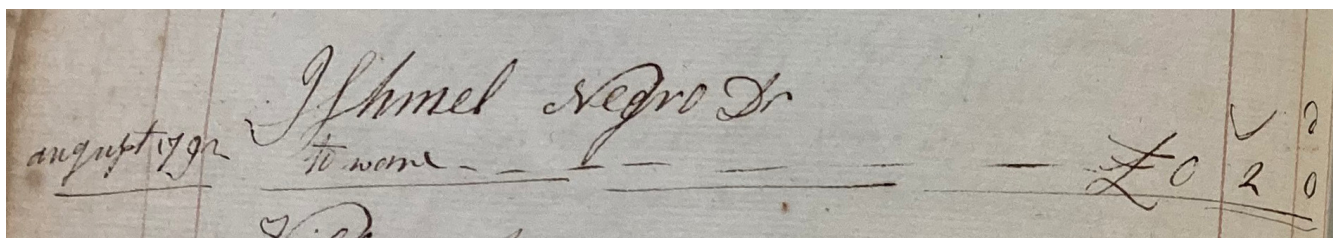 Ishmel Negro Dr
august 1792 to ware £0 2 0